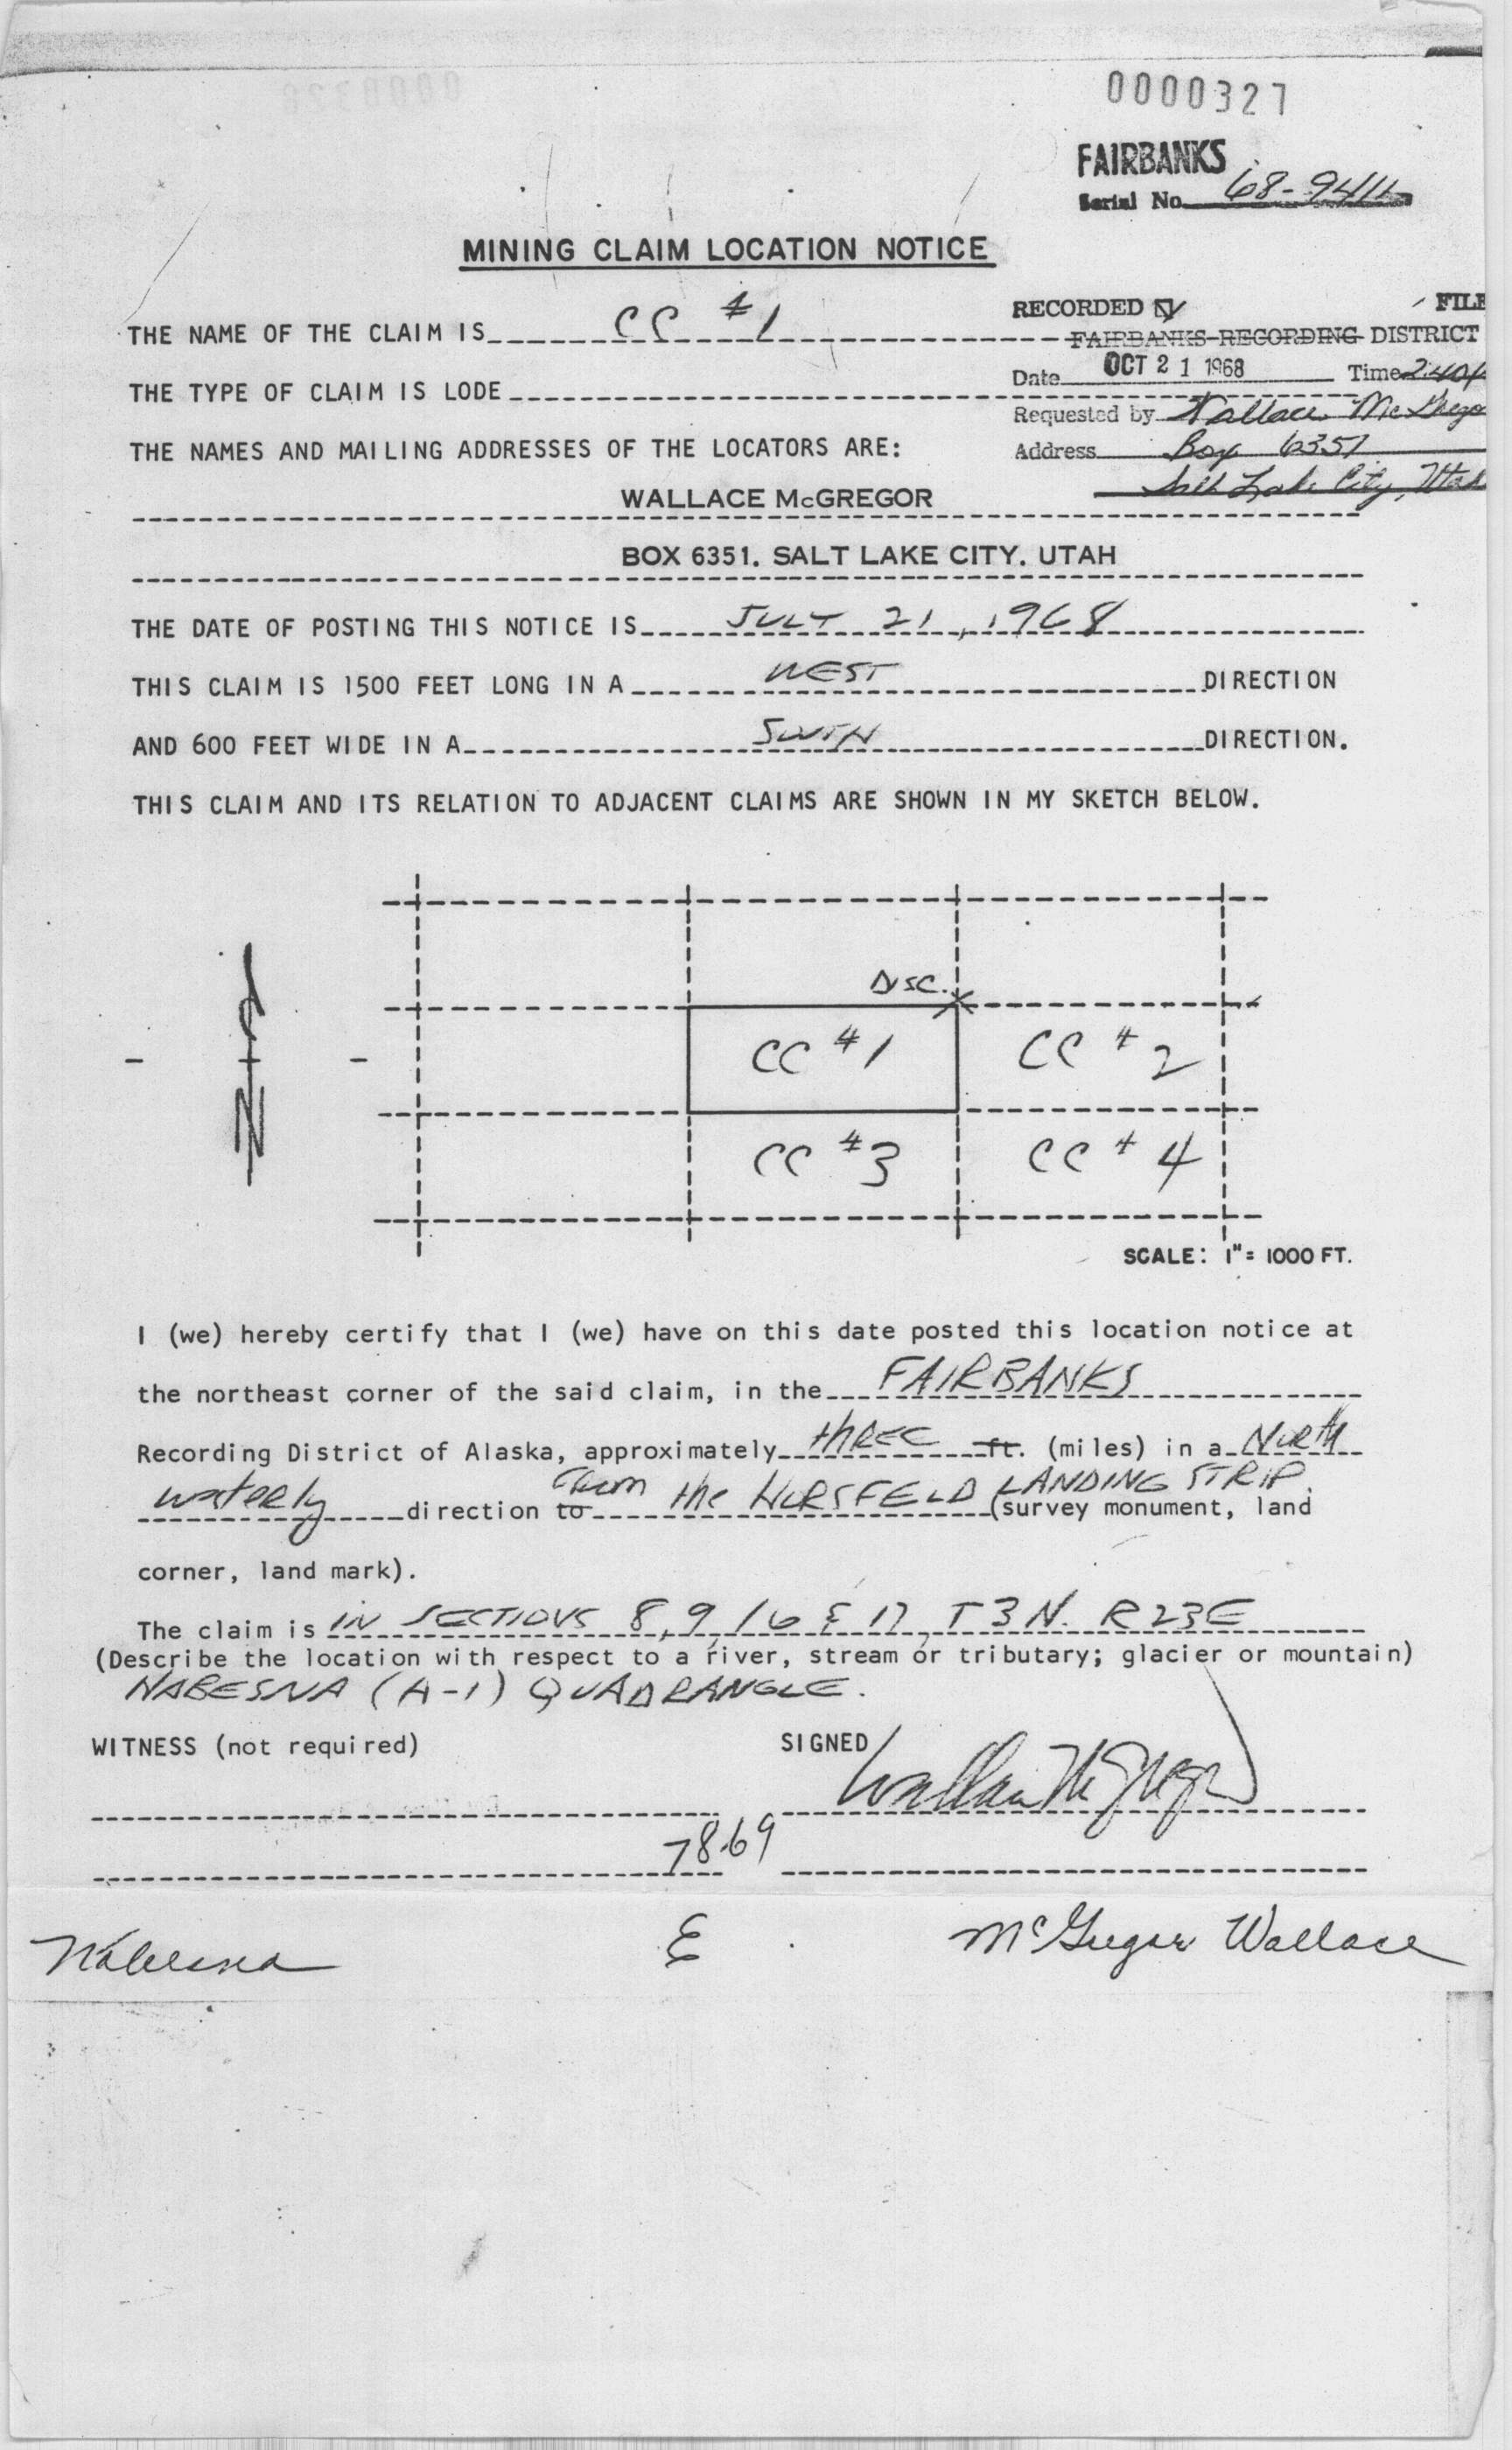 0000327
FAIRBANKS
Serial No. 68-9414
MINING CLAIM LOCATION NOTICE
RECORDED FILE
THE NAME OF THE CLAIM IS CC #1
FAIRBANKS RECORDING DISTRICT
Date OCT 21 1968 Time 2:40
THE TYPE OF CLAIM IS LODE
Requested by Wallace McGrego
THE NAMES AND MAILING ADDRESSES OF THE LOCATORS ARE:
Address Box 6351
Salt Lake City, Utah
WALLACE McGREGOR
BOX 6351, SALT LAKE CITY, UTAH
THE DATE OF POSTING THIS NOTICE IS JULY 21, 1968
THIS CLAIM IS 1500 FEET LONG IN A WEST DIRECTION
AND 600 FEET WIDE IN A SOUTH DIRECTION.
THIS CLAIM AND ITS RELATION TO ADJACENT CLAIMS ARE SHOWN IN MY SKETCH BELOW.
DISC.
N
CC #1 CC #2
CC #3 CC #4
SCALE: 1"= 1000 FT.
I (we) hereby certify that I (we) have on this date posted this location notice at
the northeast corner of the said claim, in the FAIRBANKS
Recording District of Alaska, approximately THREE ft. (miles) in a North
westerly direction to from the HORSFELD LANDING STRIP.
(survey monument, land
corner, land mark).
The claim is IN SECTIONS 8, 9, 16 & 17, T 3 N. R 23 E
(Describe the location with respect to a river, stream or tributary; glacier or mountain)
NABESNA (A-1) QUADRANGLE.
WITNESS (not required) SIGNED Wallace McGregor
78-69
Nabesna E McGregor Wallace